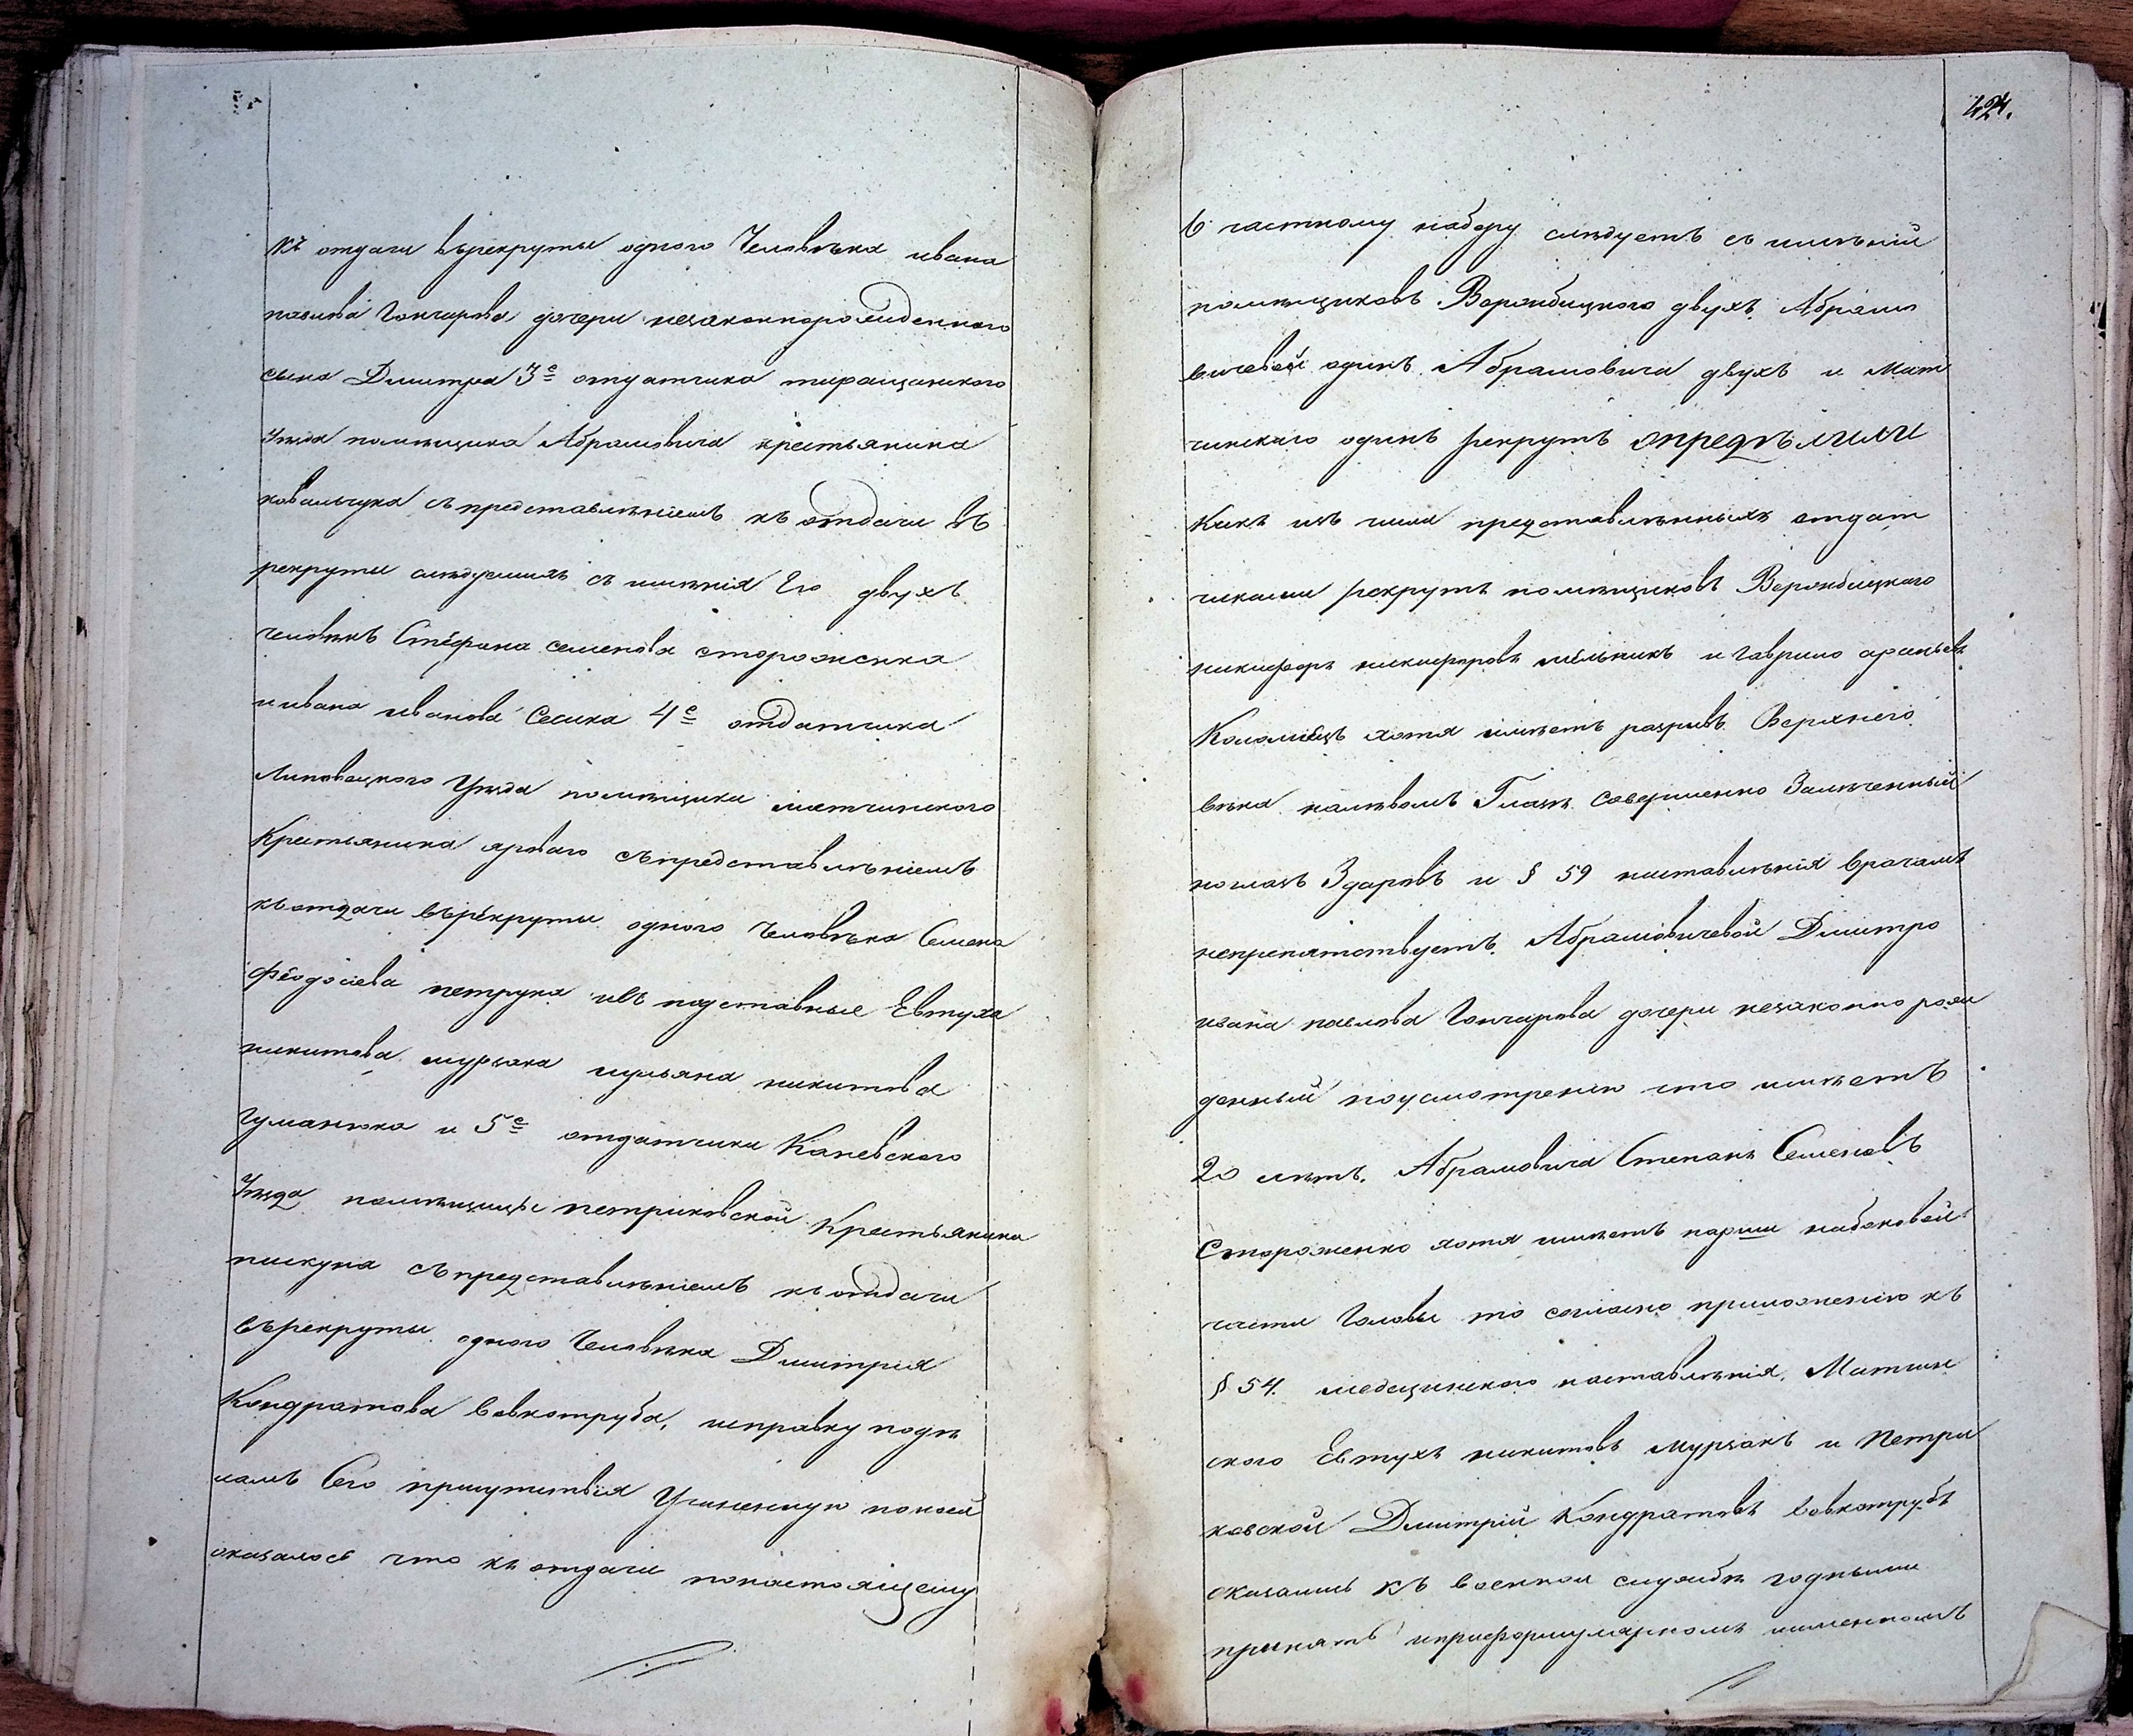 къ отдачи върекруты одного Человѣка ивана
павлова Гончарова дочери незаконнорожденного
сына Дмитра 3е отдатчика таращанского
уѣзда помѣщика Абрамовича крестьянина
ковальчука съ представлѣніемъ къ отдачи въ
рекруты слѣдуемыхъ съ имѣнія Его двухъ
человѣкъ Стефана семенова стороженка
и ивана иванова Сесика 4е отдатчика
Липовецкого Уѣзда помѣщика матчинского
Крестьянина ярового съпредставлѣніемъ
къ отдачи върекруты одного Человѣка Семена
феодосіева петрука ивъ подставные Евтуха
никитова мурзака иульяна никитова
Гуманюка и 5е отдатчика Каневского
Уѣзда помѣщицы петриковской Крестьянина
пискуна съпредставлѣніемъ къ отдачи
върекруты одного Человѣка Дмитрія
Кондратова вовкотруба, исправку поды
иамъ Сего присутствія Учиненную покоей
оказалось что къ отдачи понастоящему
424.
6 частному набору слѣдуетъ съ имѣній
помѣщиковъ Воронбицкого двухъ Абрамо
вичевой одинъ Абрамовича двухъ и Мат
чинского одинъ рекрутъ опредѣлили
Какъ изъ числа представлѣнныхъ отдат
чиками рекрутъ помѣщиковъ Воронбицкого
никифоръ никифоровъ мельникъ и Гаврило
Коломіецъ хотя имѣетъ разрывъ Верхнего
вѣка налѣвомъ Глазѣ совершенно Залѣченный
ноглазъ Здоровъ и § 59 наставлѣнія врачамъ
непрепятствуетъ, Абрамовичевой Дмитро
ивана павлова Гончарова дочери незаконно рож
денный поусмотренію что имѣетъ
20 лѣтъ. Абрамовича Степанъ Семеновъ
Стороженко хотя имѣетъ парши набоковой
части Головы то согласно приложенію къ
§ 54. медецинского наставлѣнія, Матчин
ского Евтухъ никитовъ мурзакъ и Петри
ковской Дмитрій Кондратовъ вовкотрубъ
оказались къ военной службѣ годными
принять иприформулярномъ именномъ